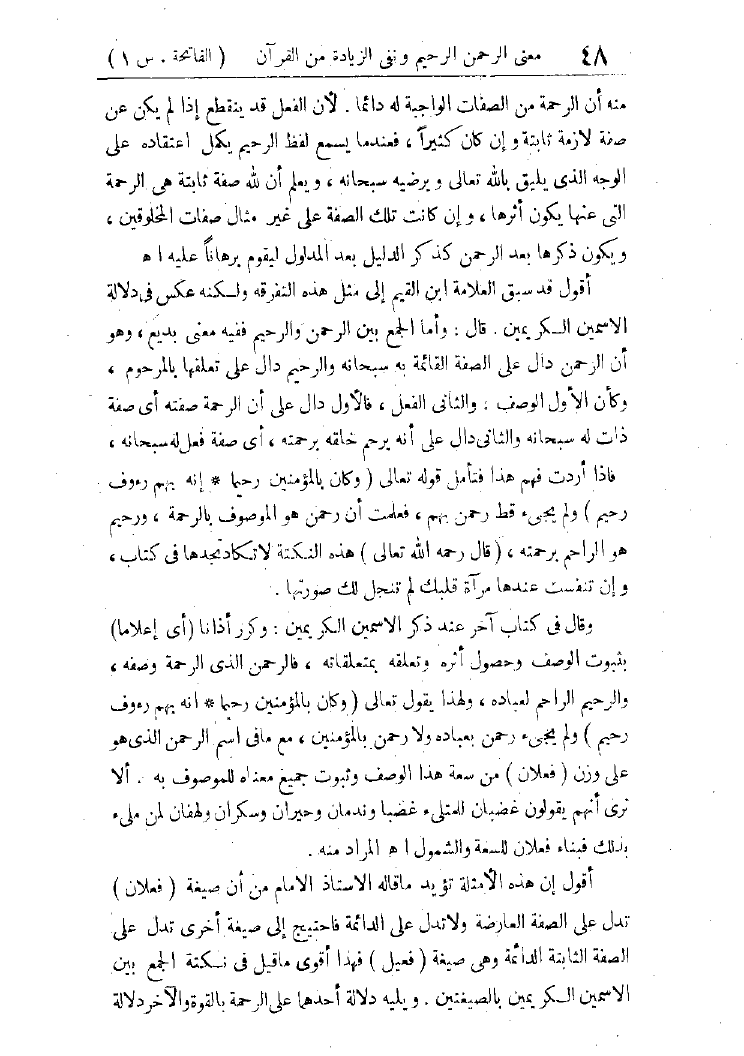 ٤٨ معنى الرحمن الرحيم ونفى الزيادة من القرآن ( الفاتحة . س ١ )
منه أن الرحمة من الصفات الواجبة له دائما . لأن الفعل قد ينقطع إذا لم يكن عن
صفة لازمة ثابتة وإن كان كثيراً ، فعندما يسمع لفظ الرحيم يكمل اعتقاده على
الوجه الذى يليق بالله تعالى ويرضيه سبحانه ، ويعلم أن لله صفة ثابتة هى الرحمة
التى عنها يكون أثرها ، وإن كانت تلك الصفة على غير مثال صفات المخلوقين ،
ويكون ذكرها بعد الرحمن كذكر الدليل بعد المدلول ليقوم برهاناً عليه ا ه
أقول قد سبق العلامة ابن القيم إلى مثل هذه التفرقه ولكنه عكس فى دلالة
الاسمين الكريمين . قال : وأما الجمع بين الرحمن والرحيم ففيه معنى بديع ، وهو
أن الرحمن دال على الصفة القائمة به سبحانه والرحيم دال على تعلقها بالمرحوم ،
وكأن الأول الوصف : والثانى الفعل ، فالأول دال على أن الرحمة صفته أى صفة
ذات له سبحانه والثانى دال على أنه يرحم خلقه برحمته ، أى صفة فعل له سبحانه ،
فاذا أردت فهم هذا فتأمل قوله تعالى ( وكان بالمؤمنين رحيما * إنه بهم رءوف
رحيم ) ولم يجىء قط رحمن بهم ، فعلمت أن رحمن هو الموصوف بالرحمة ، ورحيم
هو الراحم برحمته ، ( قال رحمه الله تعالى ) هذه النكتة لا تكاد تجدها فى كتاب ،
وإن تنفست عندها مرآة قلبك لم تنجل لك صورتها .
وقال فى كتاب آخر عند ذكر الاسمين الكريمين : وكرر أذانا (أى إعلاما)
بثبوت الوصف وحصول أثره وتعلقه بمتعلقاته ، فالرحمن الذى الرحمة وصفه ،
والرحيم الراحم لعباده ، ولهذا يقول تعالى ( وكان بالمؤمنين رحيما * انه بهم رءوف
رحيم ) ولم يجىء رحمن بعباده ولا رحمن بالمؤمنين ، مع مافى اسم الرحمن الذى هو
على وزن ( فعلان ) من سعة هذا الوصف وثبوت جميع معناه للموصوف به . ألا
ترى أنهم يقولون غضبان للمتلىء غضبا وندمان وحيران وسكران ولهفان لمن ملىء
بذلك فبناء فعلان للسعة والشمول ا ه المراد منه .
أقول إن هذه الأمثلة تؤيد ماقاله الاستاذ الامام من أن صيغة ( فعلان )
تدل على الصفة العارضة ولاتدل على الدائمة فاحتيج إلى صيغة أخرى تدل على
الصفة الثابتة الدائمة وهى صيغة ( فعيل ) فهذا أقوى ماقيل فى نكتة الجمع بين
الاسمين الكريمين بالصيغتين . ويليه دلالة أحدها على الرحمة بالقوة والآخر دلالة